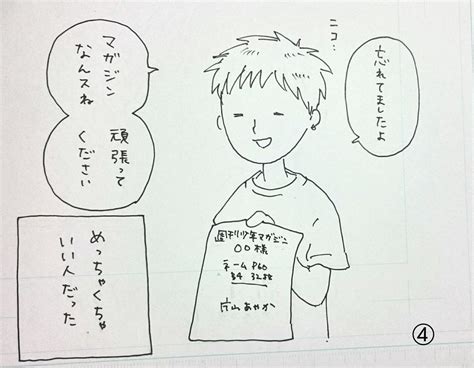 ニコ…
忘れてましたよ
マガジン
なんスね
頑張って
ください
週刊少年マガジン
〇〇様
ネーム P60
片山あやか
めっちゃくちゃ
いい人だった
④